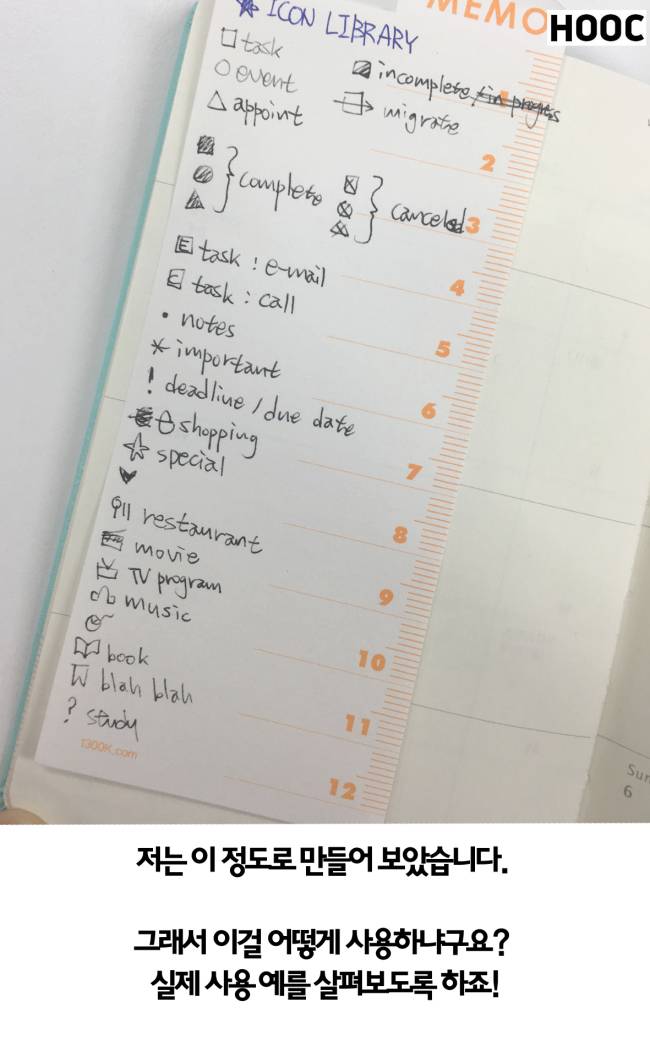 MEMO
HOOC
ICON LIBRARY
task
event
incomplete / in progress
appoint
migrate
complete
canceled
E task : e-mail
C task : call
• notes
* important
! deadline / due date
shopping
special
restaurant
movie
TV program
music
book
blah blah
? study
1300K.com
2
3
4
5
6
7
8
9
10
11
12
Sun
6
저는 이 정도로 만들어 보았습니다.
그래서 이걸 어떻게 사용하냐구요?
실제 사용 예를 살펴보도록 하죠!